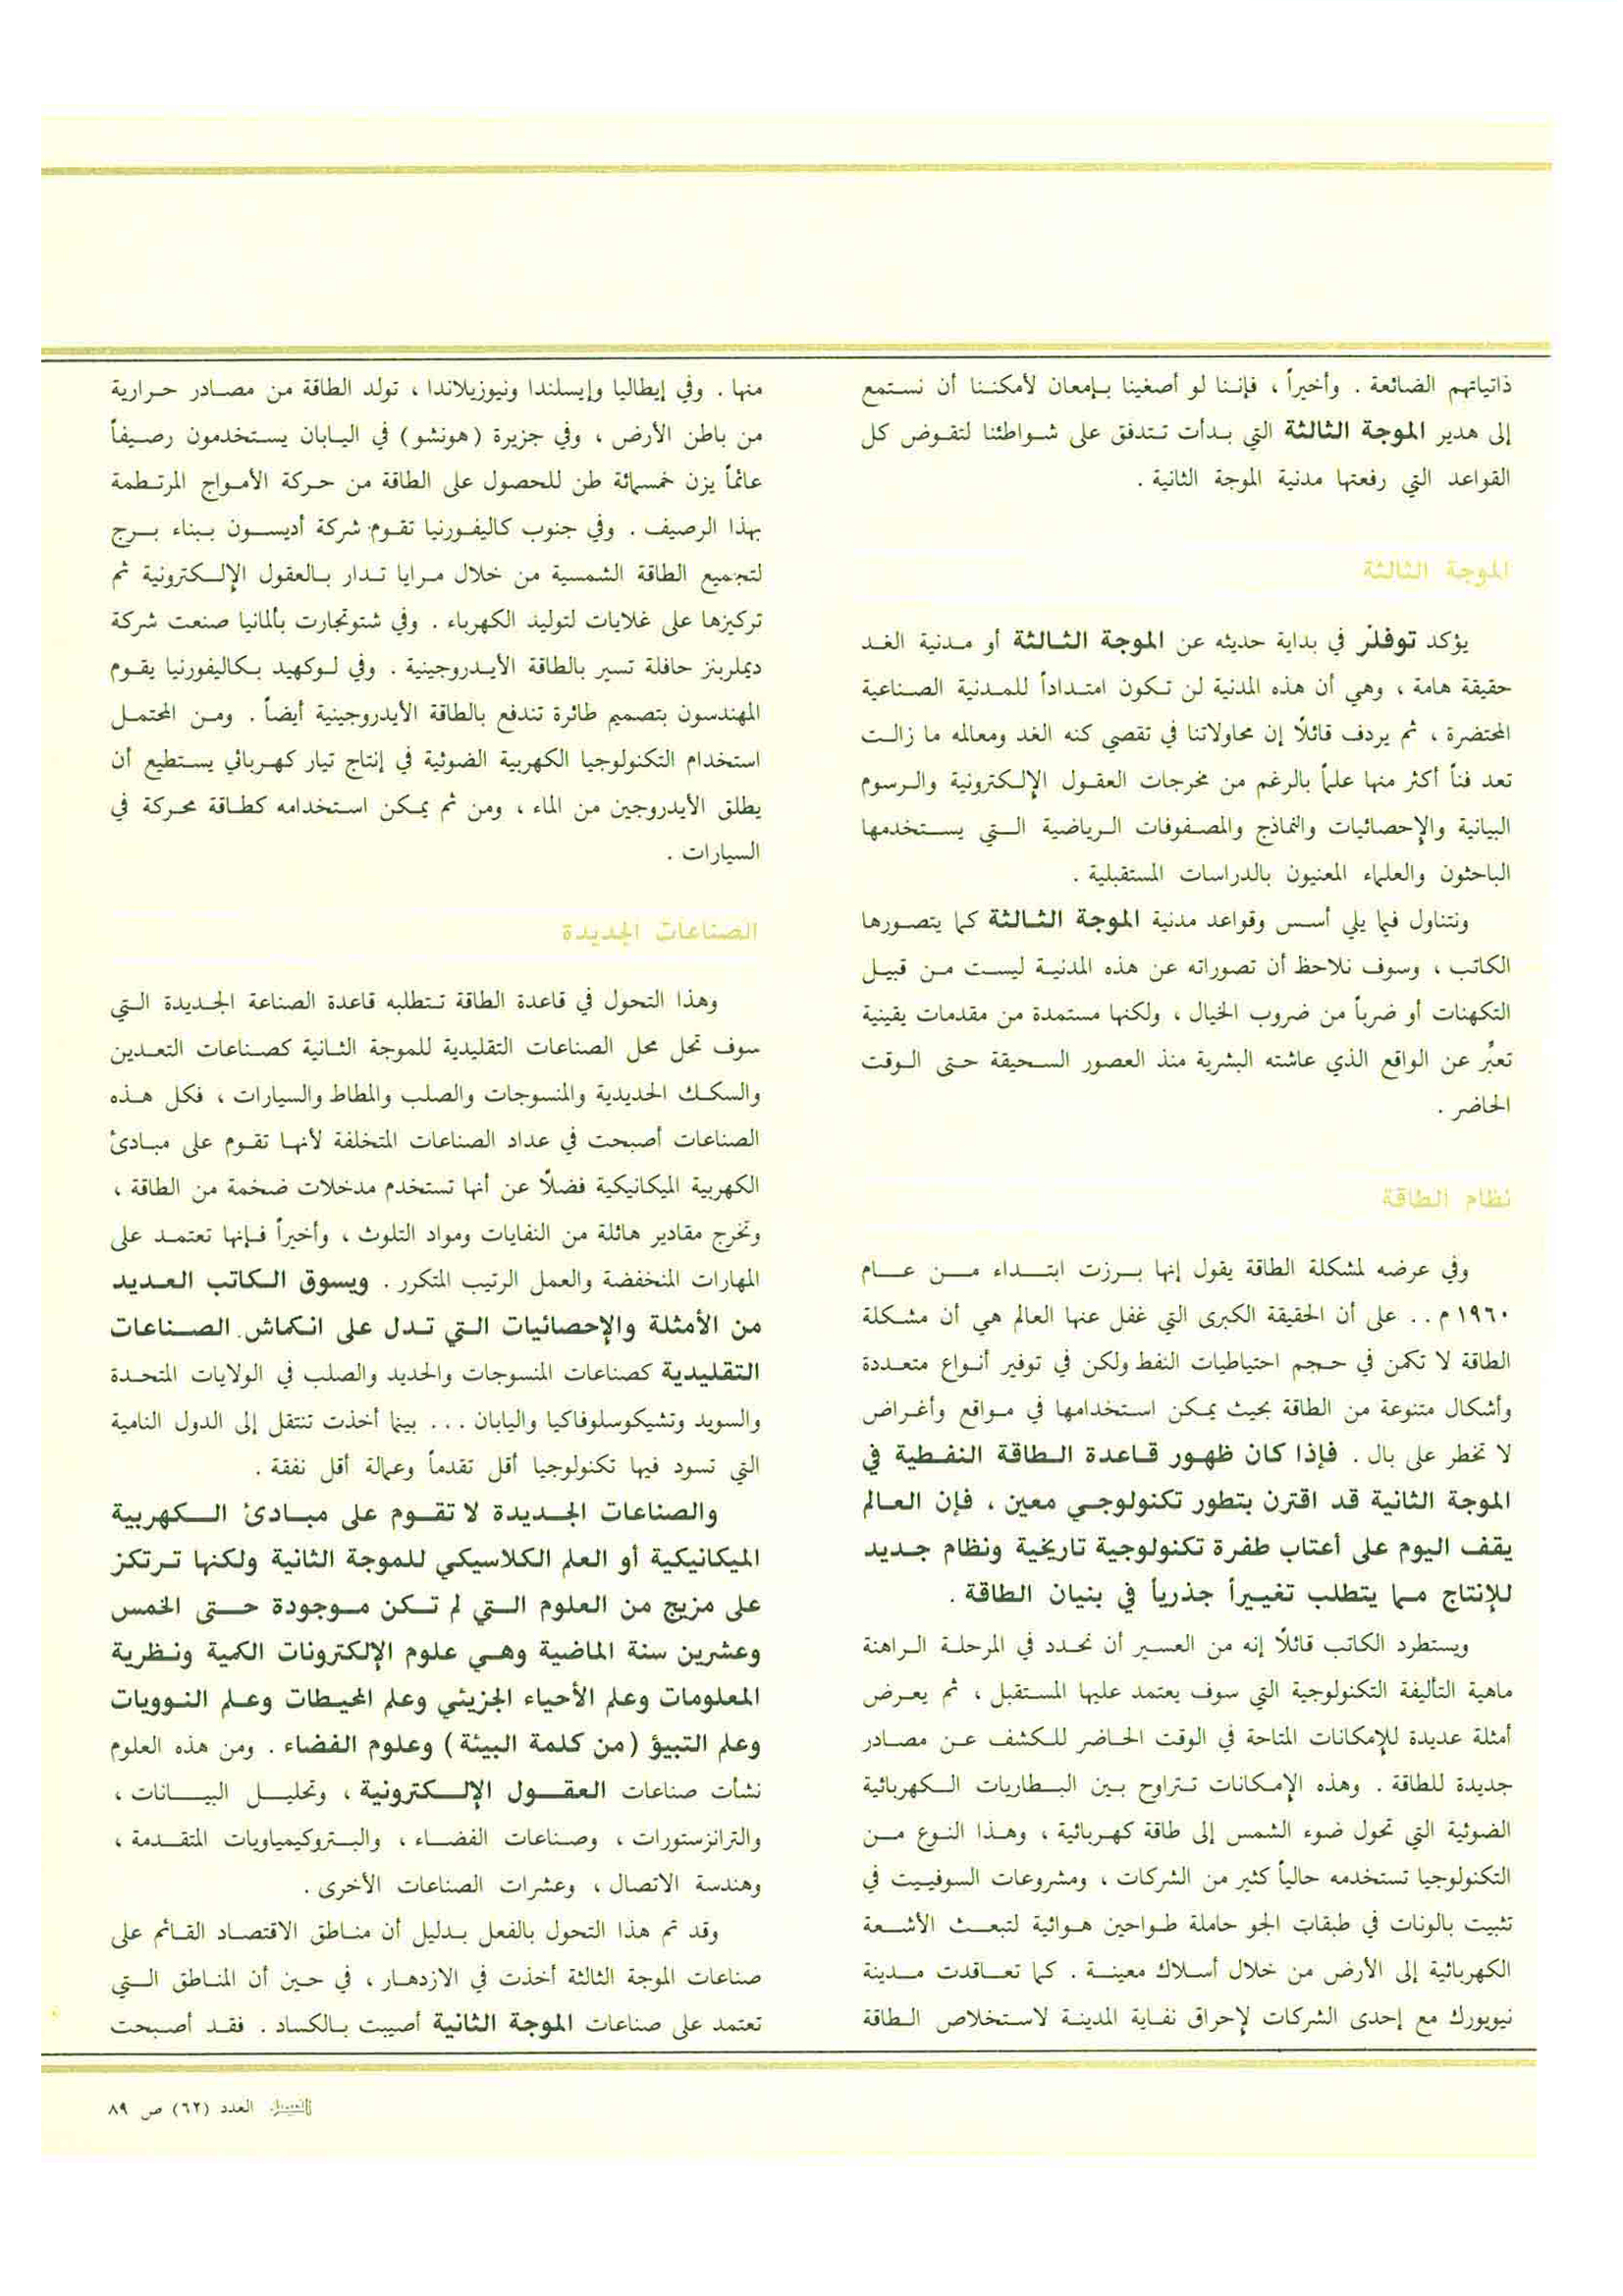 ذاتياتهم الضائعة . وأخيراً ، فإننا لو أصغينا بإمعان لأمكننا أن نستمع
إلى هدير الموجة الثالثة التي بدأت تتدفق على شواطئنا لتقوض كل
القواعد التي رفعتها مدنية الموجة الثانية .
الموجة الثالثة
يؤكد توفلر في بداية حديثه عن الموجة الثالثة أو مدنية الغد
حقيقة هامة ، وهي أن هذه المدنية لن تكون امتداداً للمدنية الصناعية
المحتضرة ، ثم يردف قائلاً إن محاولاتنا في تقصي كنه الغد ومعالمه ما زالت
تعد فناً أكثر منها علماً بالرغم من مخرجات العقول الإلكترونية والرسوم
البيانية والإحصائيات والنماذج والمصفوفات الرياضية التي يستخدمها
الباحثون والعلماء المعنيون بالدراسات المستقبلية .
ونتناول فيما يلي أسس وقواعد مدنية الموجة الثالثة كما يتصورها
الكاتب ، وسوف نلاحظ أن تصوراته عن هذه المدنية ليست من قبيل
التكهنات أو ضرباً من ضروب الخيال ، ولكنها مستمدة من مقدمات يقينية
تعبِّر عن الواقع الذي عاشته البشرية منذ العصور السحيقة حتى الوقت
الحاضر .
نظام الطاقة
وفي عرضه لمشكلة الطاقة يقول إنها برزت ابتداء من عام
١٩٦٠ م . . على أن الحقيقة الكبرى التي غفل عنها العالم هي أن مشكلة
الطاقة لا تكمن في حجم احتياطيات النفط ولكن في توفير أنواع متعددة
وأشكال متنوعة من الطاقة بحيث يمكن استخدامها في مواقع وأغراض
لا تخطر على بال . فإذا كان ظهور قاعدة الطاقة النفطية في
الموجة الثانية قد اقترن بتطور تكنولوجي معين ، فإن العالم
يقف اليوم على أعتاب طفرة تكنولوجية تاريخية ونظام جديد
للإنتاج مما يتطلب تغييراً جذرياً في بنيان الطاقة .
ويستطرد الكاتب قائلاً إنه من العسير أن نحدد في المرحلة الراهنة
ماهية التأليفة التكنولوجية التي سوف يعتمد عليها المستقبل ، ثم يعرض
أمثلة عديدة للإمكانات المتاحة في الوقت الحاضر للكشف عن مصادر
جديدة للطاقة . وهذه الإمكانات تتراوح بين البطاريات الكهربائية
الضوئية التي تحول ضوء الشمس إلى طاقة كهربائية ، وهذا النوع من
التكنولوجيا تستخدمه حالياً كثير من الشركات ، ومشروعات السوفييت في
تثبيت بالونات في طبقات الجو حاملة طواحين هوائية لتبعث الأشعة
الكهربائية إلى الأرض من خلال أسلاك معينة . كما تعاقدت مدينة
نيويورك مع إحدى الشركات لإحراق نفاية المدينة لاستخلاص الطاقة
منها . وفي إيطاليا وإيسلندا ونيوزيلاندا ، تولد الطاقة من مصادر حرارية
من باطن الأرض ، وفي جزيرة (هونشو) في اليابان يستخدمون رصيفاً
عائماً يزن خمسمائة طن للحصول على الطاقة من حركة الأمواج المرتطمة
بهذا الرصيف . وفي جنوب كاليفورنيا تقوم شركة أديسون ببناء برج
لتجميع الطاقة الشمسية من خلال مرايا تدار بالعقول الإلكترونية ثم
تركيزها على غلايات لتوليد الكهرباء . وفي شتوتجارت بألمانيا صنعت شركة
ديملربنز حافلة تسير بالطاقة الأيدروجينية . وفي لوكهيد بكاليفورنيا يقوم
المهندسون بتصميم طائرة تندفع بالطاقة الأيدروجينية أيضاً . ومن المحتمل
استخدام التكنولوجيا الكهربية الضوئية في إنتاج تيار كهربائي يستطيع أن
يطلق الأيدروجين من الماء ، ومن ثم يمكن استخدامه كطاقة محركة في
السيارات .
الصناعات الجديدة
وهذا التحول في قاعدة الطاقة تتطلبه قاعدة الصناعة الجديدة التي
سوف تحل محل الصناعات التقليدية للموجة الثانية كصناعات التعدين
والسكك الحديدية والمنسوجات والصلب والمطاط والسيارات ، فكل هذه
الصناعات أصبحت في عداد الصناعات المتخلفة لأنها تقوم على مبادئ
الكهربية الميكانيكية فضلاً عن أنها تستخدم مدخلات ضخمة من الطاقة ،
وتخرج مقادير هائلة من النفايات ومواد التلوث ، وأخيراً فإنها تعتمد على
المهارات المنخفضة والعمل الرتيب المتكرر . ويسوق الكاتب العديد
من الأمثلة والإحصائيات التي تدل على انكماش الصناعات
التقليدية كصناعات المنسوجات والحديد والصلب في الولايات المتحدة
والسويد وتشيكوسلوفاكيا واليابان . . . بينما أخذت تنتقل إلى الدول النامية
التي تسود فيها تكنولوجيا أقل تقدماً وعمالة أقل نفقة .
والصناعات الجديدة لا تقوم على مبادئ الكهربية
الميكانيكية أو العلم الكلاسيكي للموجة الثانية ولكنها ترتكز
على مزيج من العلوم التي لم تكن موجودة حتى الخمس
وعشرين سنة الماضية وهي علوم الإلكترونات الكمية ونظرية
المعلومات وعلم الأحياء الجزيئي وعلم المحيطات وعلم النوويات
وعلم التبيؤ (من كلمة البيئة) وعلوم الفضاء . ومن هذه العلوم
نشأت صناعات العقول الإلكترونية ، وتحليل البيانات ،
والترانزستورات ، وصناعات الفضاء ، والبتروكيمياويات المتقدمة ،
وهندسة الاتصال ، وعشرات الصناعات الأخرى .
وقد تم هذا التحول بالفعل بدليل أن مناطق الاقتصاد القائم على
صناعات الموجة الثالثة أخذت في الازدهار ، في حين أن المناطق التي
تعتمد على صناعات الموجة الثانية أصيبت بالكساد . فقد أصبحت
الفيصل العدد (٦٢) ص ٨٩